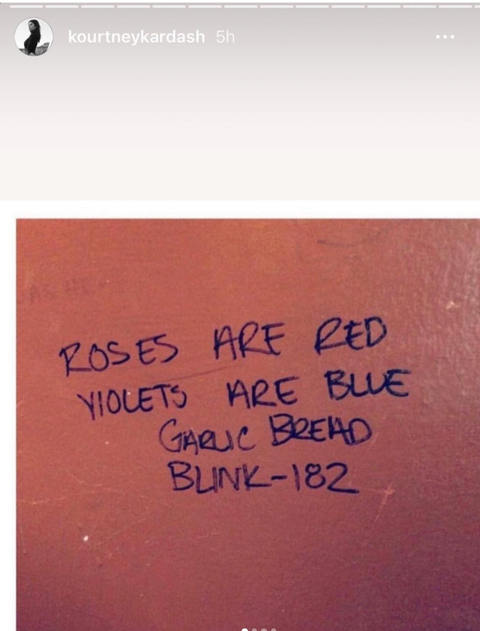 kourtneykardash 5h
ROSES ARE RED
VIOLETS ARE BLUE
GARLIC BREAD
BLINK-182